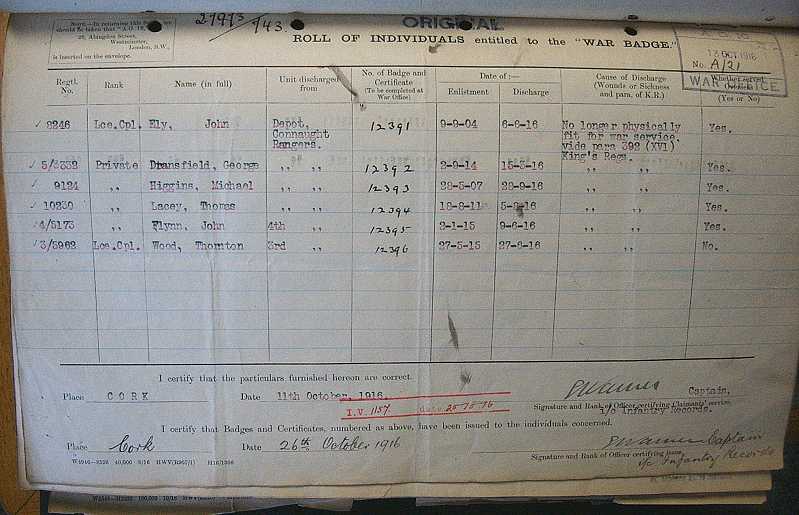 NOTE.—In returning this
should be taken that "A.G. 10,
28, Abingdon Street,
Westminster,
London, S.W.,
is inserted on the envelope.
143.
ORIGINAL
ROLL OF INDIVIDUALS entitled to the "WAR BADGE."
13 OCT 1916
No. A/21
WAR OFFICE
Regtl. No. Rank Name (in full) Unit discharged from No. of Badge and Certificate (To be completed at War Office) Date of:— Enlistment Discharge Cause of Discharge (Wounds or Sickness and para. of K.R.) Whether served (Yes or No)
8246 Lce.Cpl. Ely, John Depot, Connaught Rangers. 12391 9-9-04 6-6-16 No longer physically fit for war service, vide para 392 (XVI) King's Regs. Yes.
5/3352 Private Dransfield, George ,, ,, 12392 2-9-14 15-3-16 ,, ,, Yes.
9124 ,, Higgins, Michael ,, ,, 12393 28-5-07 28-9-16 ,, ,, Yes.
10230 ,, Lacey, Thomas ,, ,, 12394 18-8-11 ,, ,, Yes.
4/5173 ,, Flynn, John 4th ,, 12395 2-1-15 9-6-16 ,, ,, Yes.
3/5962 Lce.Cpl. Wood, Thornton 3rd ,, 12396 27-5-15 27-6-16 ,, ,, No.
I certify that the particulars furnished hereon are correct.
Place CORK Date 11th October, 1916. Captain,
I.V. 1157 date 25-10-16
Signature and Rank of Officer certifying Claimants' service.
i/c Infantry Records.
I certify that Badges and Certificates, numbered as above, have been issued to the individuals concerned.
Place Cork Date 26th October 1916 Captain
Signature and Rank of Officer certifying issue.
i/c Infantry Records